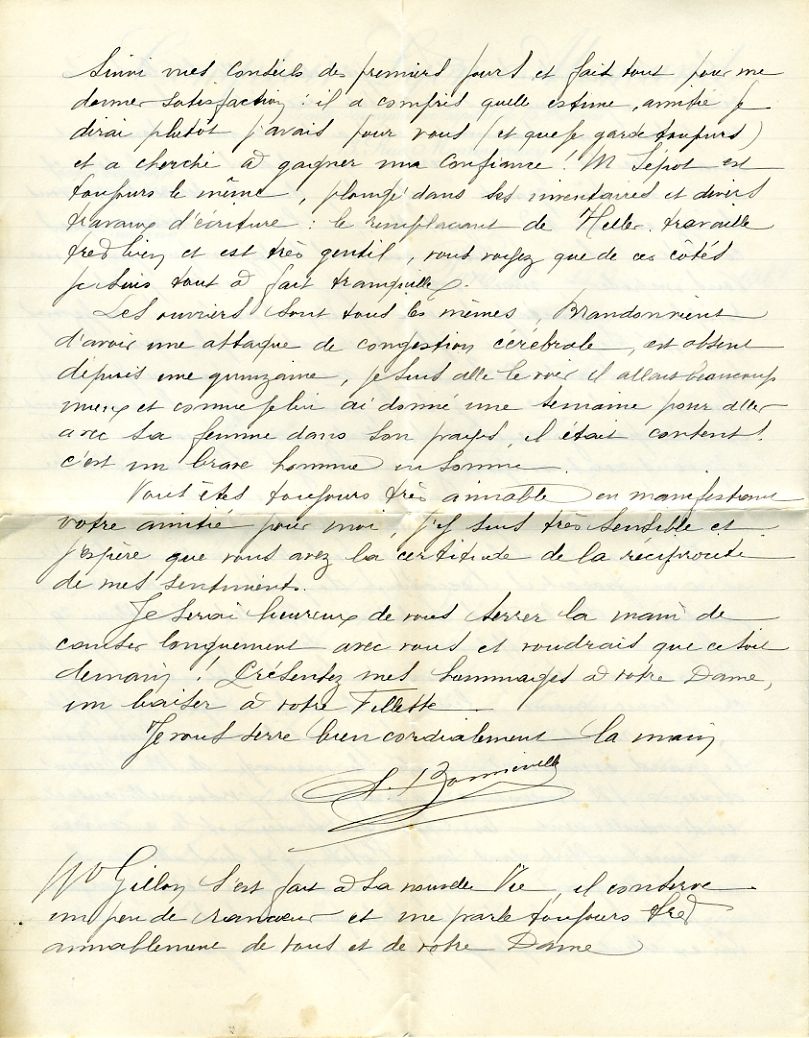 suivi mes conseils des premiers jours et fait tout pour me
donner satisfaction : il a compris quelle estime, amitié je
dirai plutôt j'avais pour vous (et que je garde toujours)
et a cherché à gagner ma confiance ! M Lépot est
toujours le même, plongé dans ses inventaires et divers
travaux d'écriture : le remplaçant de Heller travaille
très bien et est très gentil, vous voyez que de ces côtés
je suis tout à fait tranquille.
Les ouvriers sont tous les mêmes, Brandon vient
d'avoir une attaque de congestion cérébrale, est absent
depuis une quinzaine, je suis allé le voir il allait beaucoup
mieux et comme je lui ai donné une semaine pour aller
avec sa femme dans son pays, il était content.
c'est un brave homme en somme.
Vous êtes toujours très aimable en manifestant
votre amitié pour moi, j'y suis très sensible et
j'espère que vous avez la certitude de la réciprocité
de mes sentiments.
Je serai heureux de vous serrer la main de
causer longuement avec vous et voudrais que ce soit
demain ! Présentez mes hommages à votre Dame,
un baiser à votre Fillette.
Je vous serre bien cordialement la main
Bonneville
Gillon s'est fait à sa nouvelle vie, il conserve
un peu de rancoeur et me parle toujours très
aimablement de vous et de votre Dame